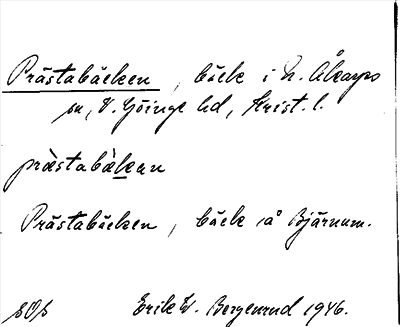 Prästabäcken, bäck i N. Åkarps
sn, V. Göinge hd, Krist. l.
prästabäkan
Prästabäcken, bäck i Bjärnum.
Erik W. Bergenrud 1946.